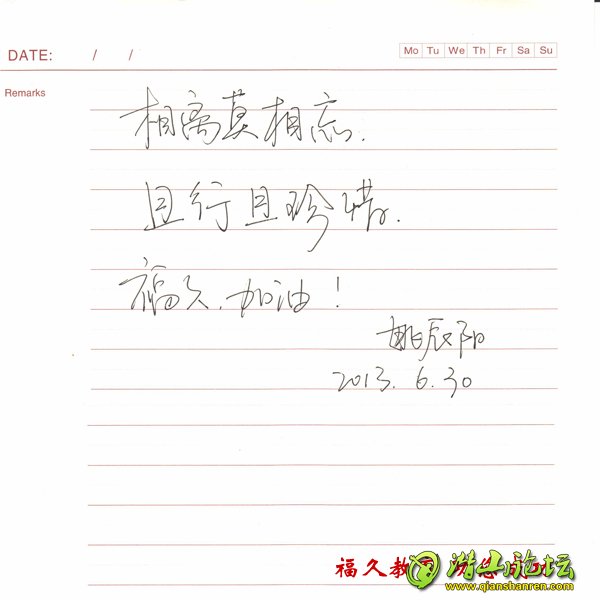 DATE: / /
Mo Tu We Th Fr Sa Su
Remarks
相离莫相忘.
且行且珍惜.
福久.加油!
姚辰阳
2013. 6. 30
福久教
潜山论坛
www.qianshanren.com